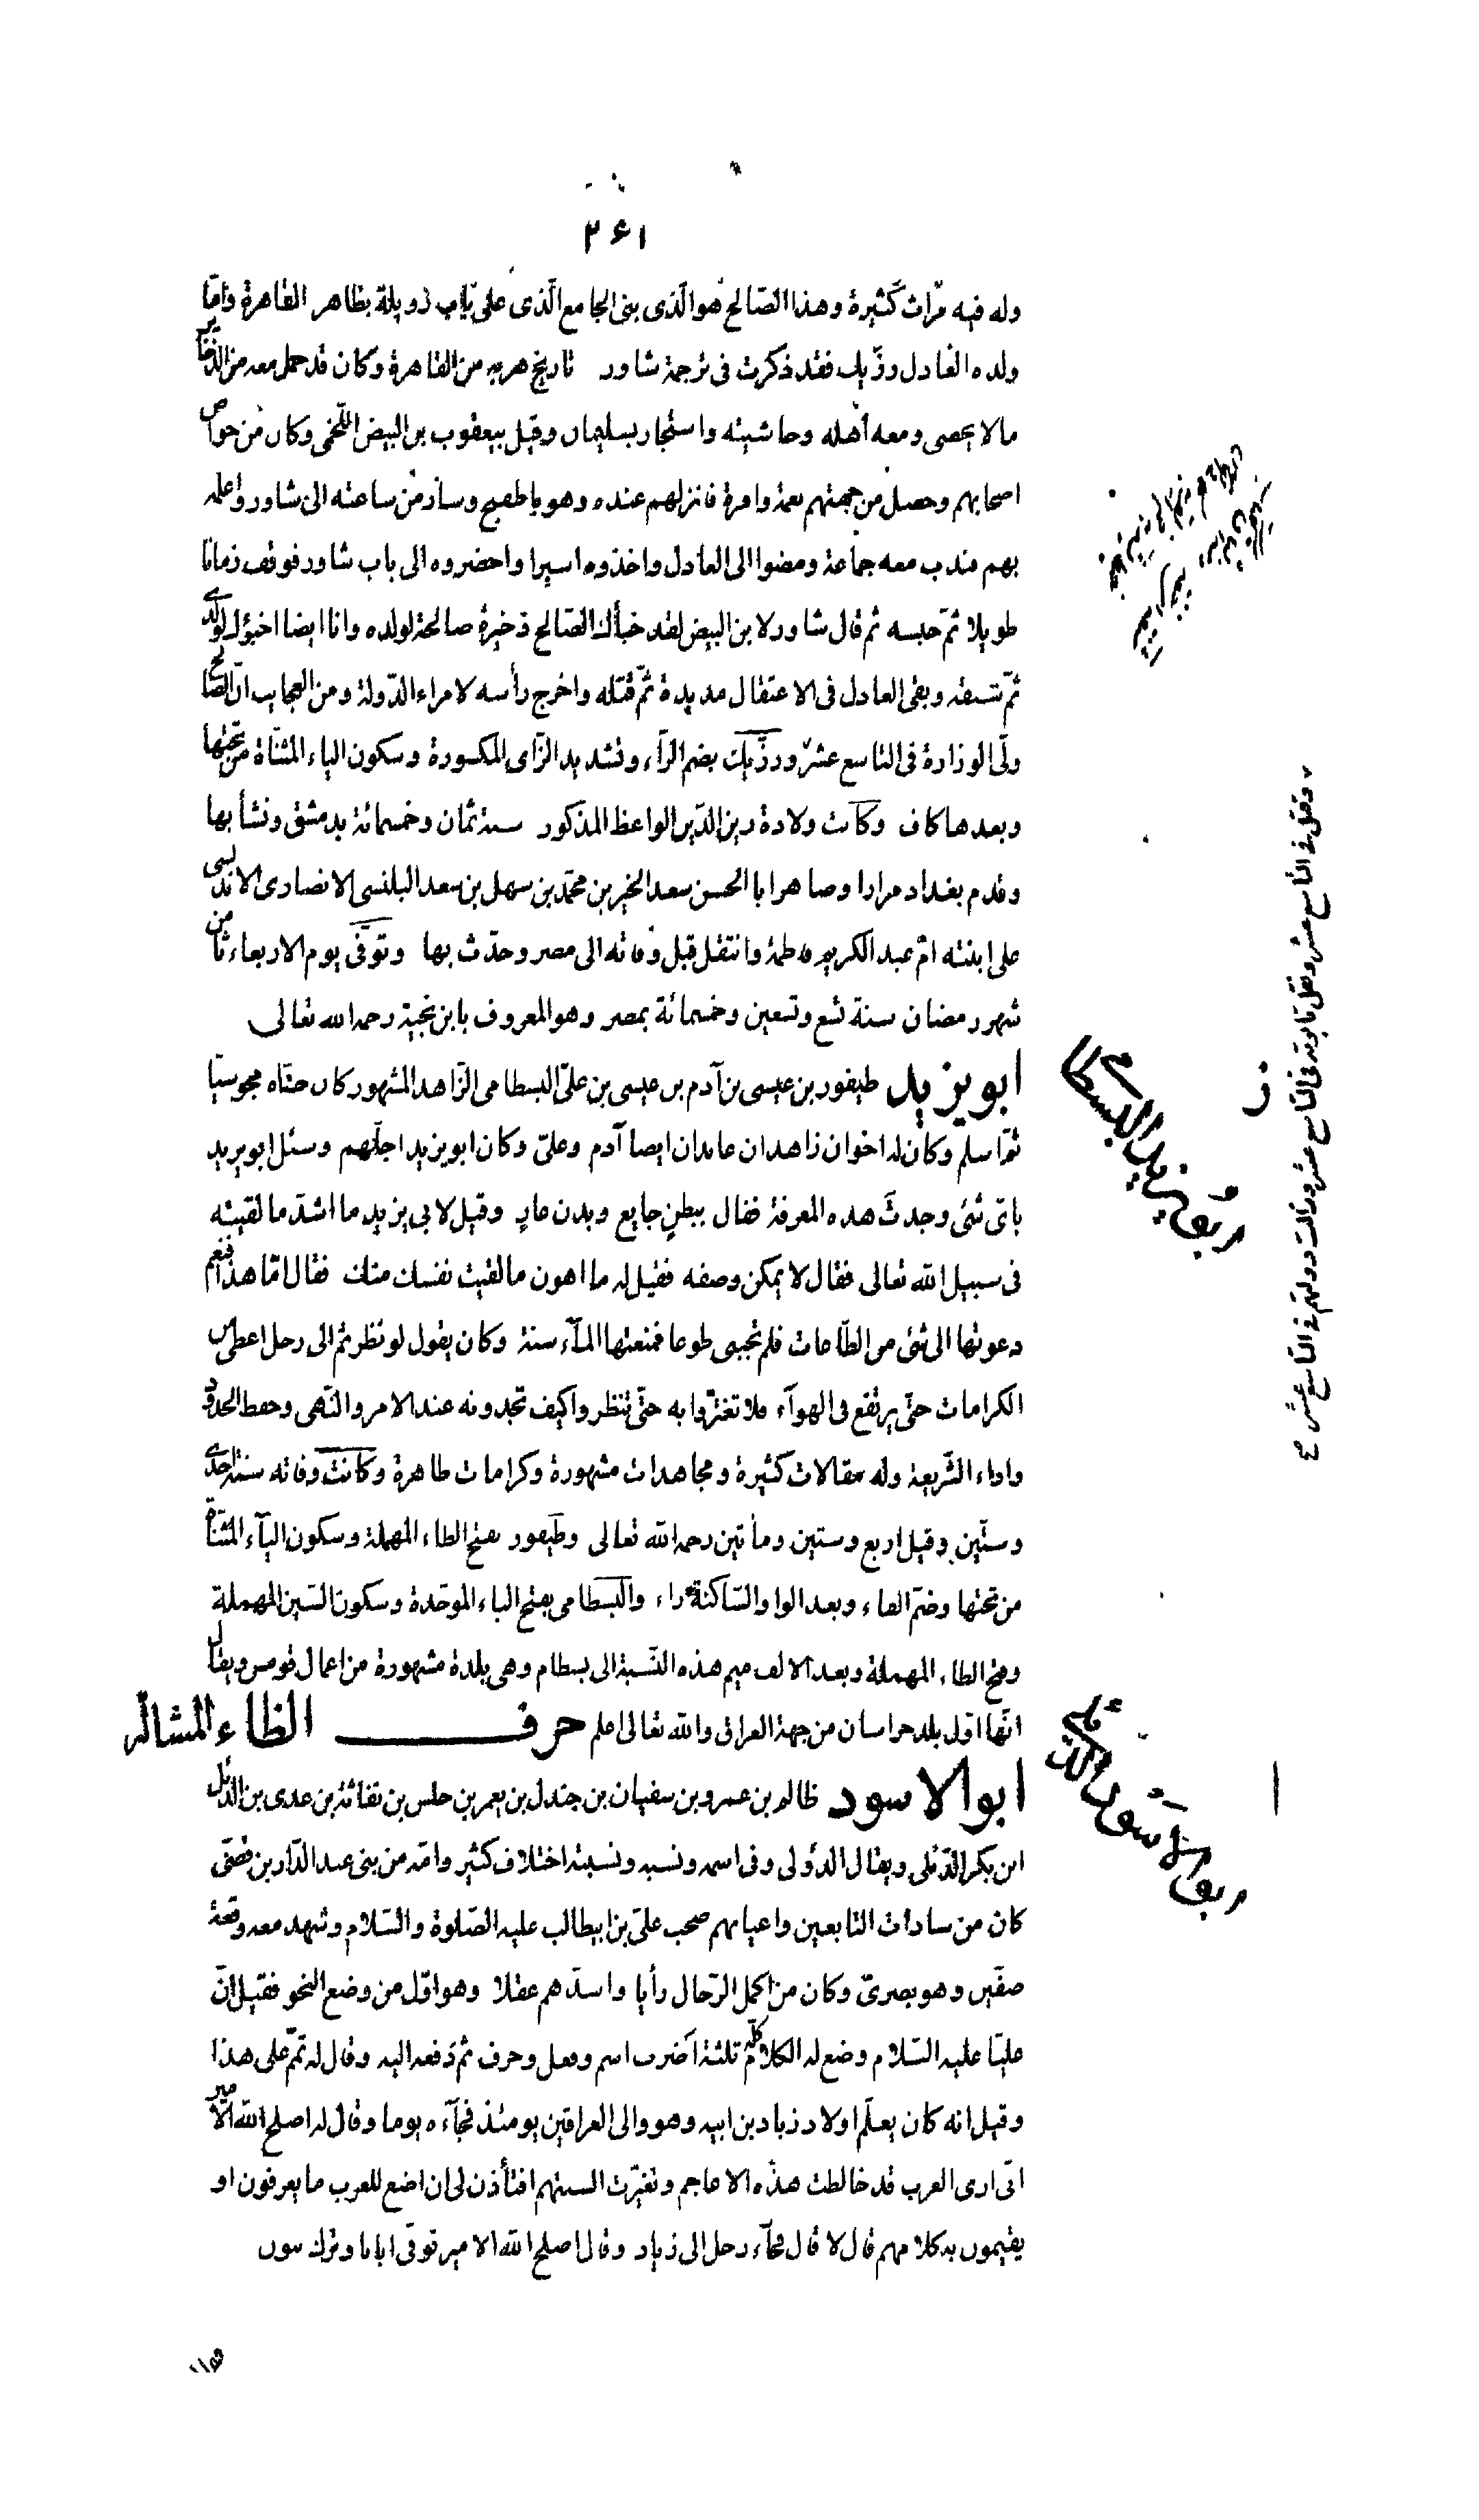 ٢٤١
وله فيه مراث كثيرة وهذا الصّالح هو الّذى بنى الجامع الّذى على باب زويلة بظاهر القاهرة وامّا
ولده العادل رزّيك فقد ذكرت فى ترجمة شاور تاريخ هربه من القاهرة وكان قد حمل معه من الذخاير
مالا يحصى ومعه أهله وحاشيته واستجار بسليمان وقيل بيعقوب بن البيض اللّخمى وكان من خواص
اصحابهم وحصل من جهتهم نعمة وافرة فانزلهم عنده وهو باطفيح وسار من ساعته الى شاور واعلمه
بهم فندب معه جماعة ومضوا الى العادل واخذوه اسيرا واحضروه الى باب شاور فوقف زمانا
طويلا ثمّ حبسه ثم قال شاور لابن البيض لقد خبأك الصّالح ذخيرة صالحة لولده وانا ايضا اخبؤك لولدى
ثمّ شنقه وبقى العادل فى الاعتقال مديدة ثمّ قتله واخرج رأسه لامراء الدّولة ومن العجايب انّ الصّالح
ولّى الوزارة فى التاسع عشر ورزّيك بضم الرّآء وتشديد الزّاى المكسورة وسكون الياء المثنّاة من تحتها
وبعدها كاف وكانت ولادة زين الدّين الواعظ المذكور سنة ثمان وخمسمائة بدمشق ونشأ بها
وقدم بغداد مرارا وصاهر ابا الحسن سعد الخير بن محمّد بن سهل بن سعد البلنسى الانصارى الاندلسى
على ابنته امّ عبد الكريم فاطمة وانتقل قبل وفاته الى مصر وحدّث بها وتوفّى يوم الاربعاء ثامن
شهر رمضان سنة تسع وتسعين وخمسمائة بمصر وهو المعروف بابن نجية رحمه الله تعالى
ابو يزيد طيفور بن عيسى بن آدم بن عيسى بن علىّ البسطامى الزّاهد المشهور كان جدّه مجوسيّا
ثمّ اسلم وكان له اخوان زاهدان عابدان ايضا آدم وعلىّ وكان ابو يزيد اجلّهم وسئل ابو يزيد
باىّ شئى وجدتَ هذه المعرفة فقال ببطنٍ جايع وبدن عارٍ وقيل لابى يزيد ما اشدّ ما لقيته
فى سبيل الله تعالى فقال لا يمكن وصفه فقيل له ما اهون ما لقيت نفسك منك فقال امّا هذا فنعم
دعوتها الى شئى من الطّاعات فلم تجبنى طوعا فمنعتها المآء سنة وكان يقول لو نظرتم الى رجل اعطى من
الكرامات حتّى يرتفع فى الهوآء فلا تغترّوا به حتّى تنظروا كيف تجدونه عند الامر والنّهى وحفظ الحدود
واداء الشّريعة وله مقالات كثيرة ومجاهدات مشهورة وكرامات ظاهرة وكانت وفاته سنة احدى
وستّين وقيل اربع وستين ومأتين رحمه الله تعالى وطَيفور بفتح الطاء المهملة وسكون اليآء المثنّاة
من تحتها وضمّ الفاء وبعد الواو السّاكنة راء والبَسطامى بفتح الباء الموحّدة وسكون السّين المهملة
وفتح الطاء المهملة وبعد الالف ميم هذه النّسبة الى بسطام وهى بلدة مشهورة من اعمال قومس ويقال
انّها اوّل بلد خراسان من جهة العراق والله تعالى اعلم حرف الظاء المشاله
ابو الاسود ظالم بن عمرو بن سفيان بن جندل بن يعمر بن حلس بن نفاثة بن عدى بن الدّئل
ابن بكر الدّئلى ويقال الدؤلى وفى اسمه ونسبه ونسبته اختلاف كثير وامّه من بنى عبد الدّار بن قصّى
كان من سادات التابعين واعيانهم صحب علىّ بن ابيطالب عليه الصّلوة والسّلام وشهد معه وقعة
صفّين وهو بصرىّ وكان من اكمل الرّجال رأيا واسدّهم عقلا وهو اوّل من وضع النحو فقيل انّ
عليّا عليه السّلام وضع له الكلام كلّه ثلثة اضرب اسم وفعل وحرف ثم دفعه اليه وقال له تمّم على هذا
وقيل انه كان يعلّم اولاد زياد بن ابيه وهو والى العراقين يومئذ فجآءه يوما وقال له اصلح الله الامير
انّى ارى العرب قد خالطت هذه الاعاجم وتغيّرت السنتهم افتأذن لى ان اضع للعرب ما يعرفون او
يقيمون به كلامهم قال لا قال فجآء رجل الى زياد وقال اصلح الله الامير توفى ابانا وترك بنون
ونقل فى التاسع عشر ونقل تابوته فى التاسع عشر وزالت دولتهم فى التاسع عشر
ابو يزيد البسطامى
ابو الاسود الدئلى